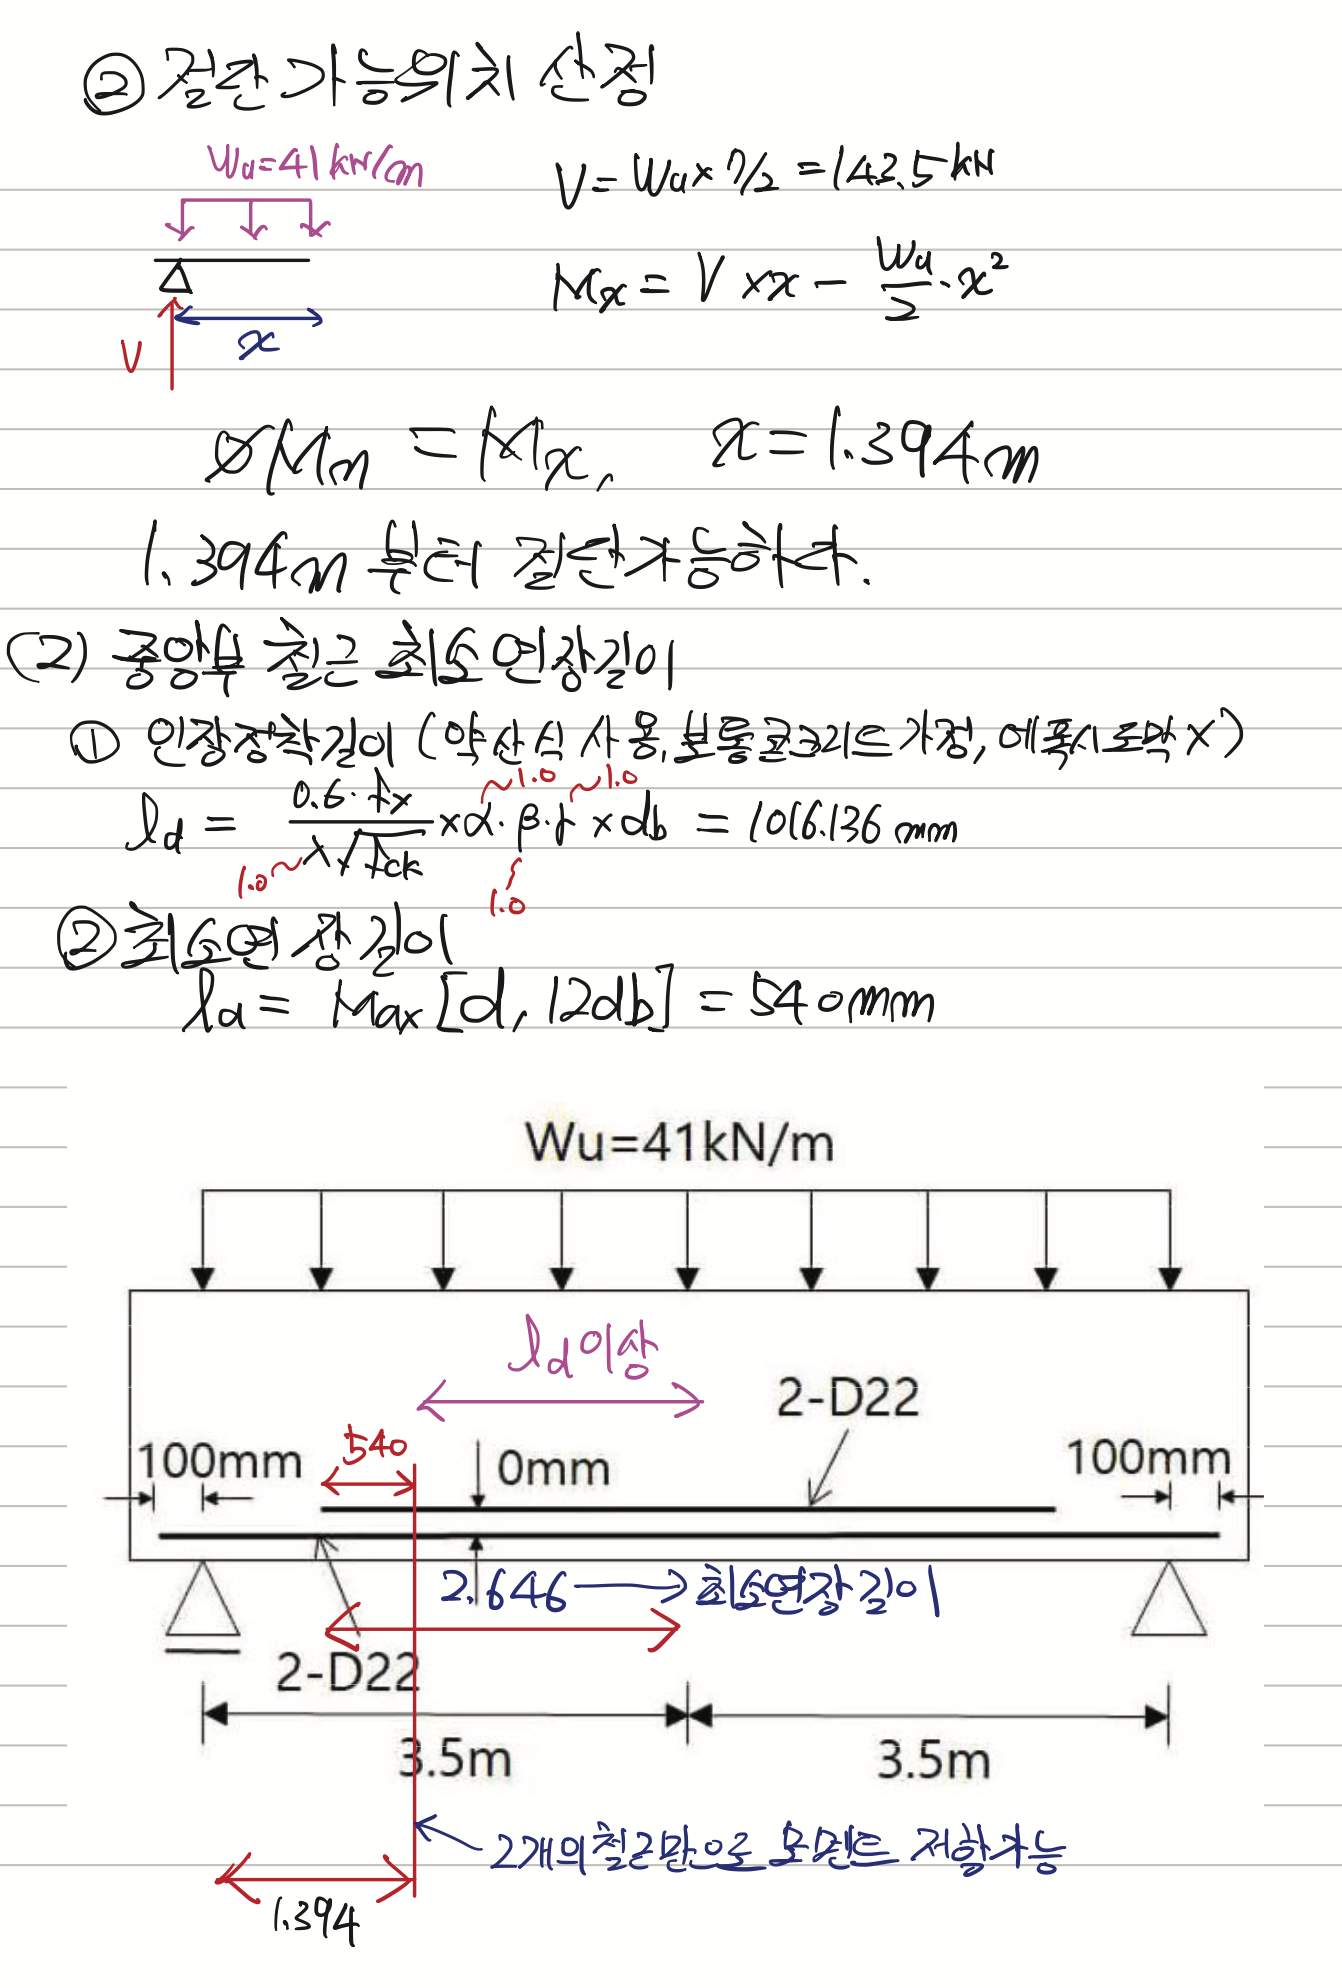 ② 절단가능위치 산정
Wu=41kN/m
V = Wu × 7/2 = 143.5kN
Mx = V × x - Wu/2 · x²
V
x
øMn = Mx, x = 1.394m
1.394m 부터 절단가능하다.
(2) 중앙부 철근 최소 연장길이
① 인장정착길이 (약산식 사용, 보통콘크리트 가정, 에폭시 도막 X)
ld = 0.6·fy / λ√fck × α·β·γ × db = 1016.136 mm
1.0 1.0
1.0 1.0
② 최소연장길이
la = Max [d, 12db] = 540mm
Wu=41kN/m
ld 이상
2-D22
540
100mm 0mm 100mm
2.646 → 최소연장길이
2-D22
3.5m 3.5m
2개의 철근만으로 모멘트 저항가능
1.394